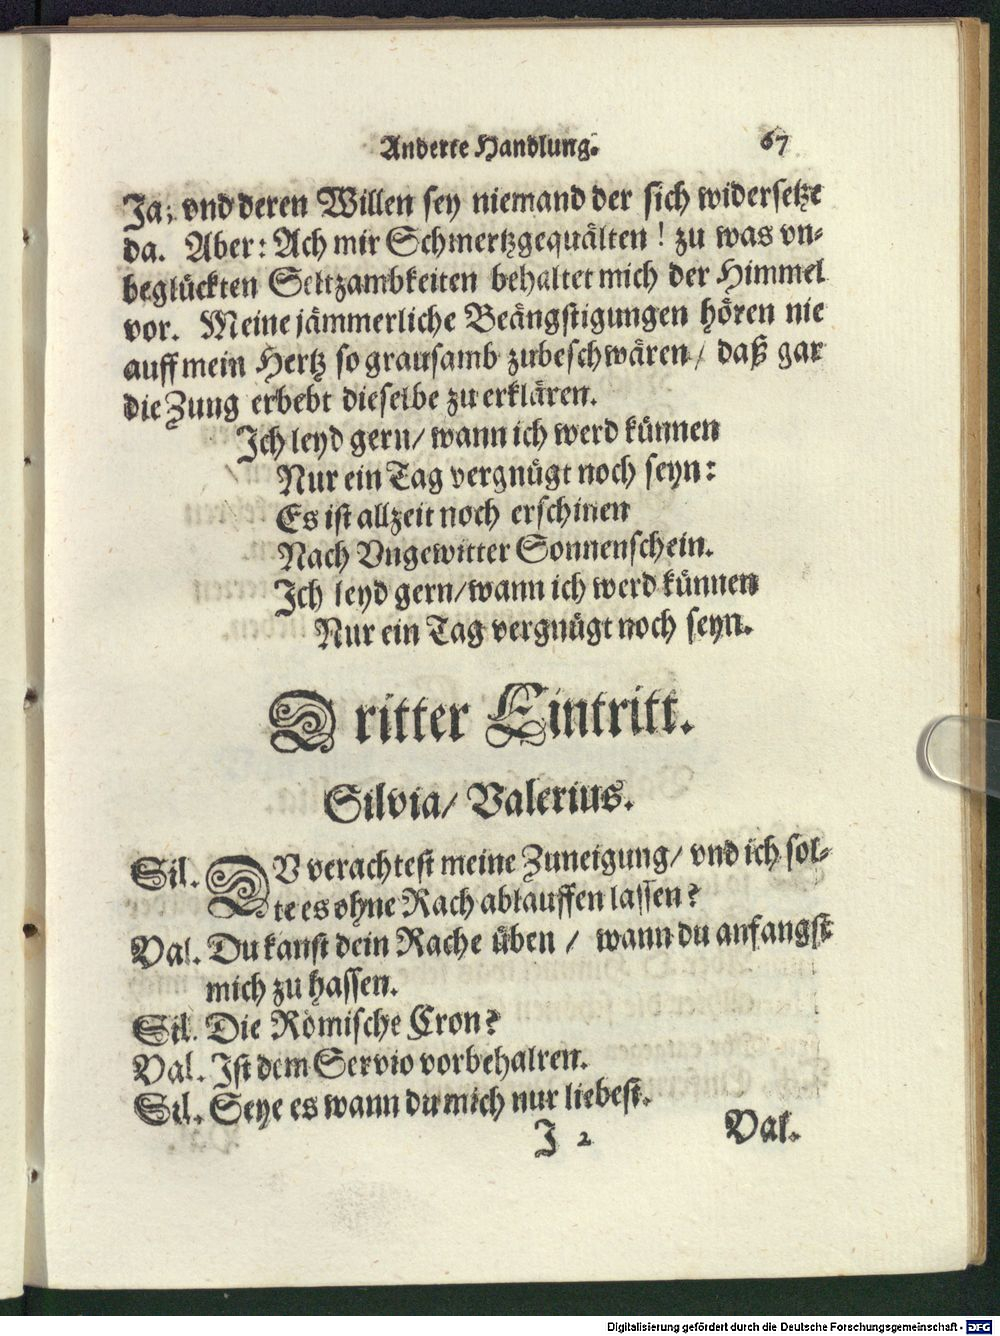 Anderte Handlung. 67
Ja; vnd deren Willen sey niemand der sich widersetze
da. Aber: Ach mir Schmertzgequälten! zu was vn-
beglückten Seltzambkeiten behaltet mich der Himmel
vor. Meine jämmerliche Beängstigungen hören nie
auff mein Hertz so grausamb zubeschwären / daß gar
die Zung erbebt dieselbe zu erklären.
Ich leyd gern / wann ich werd künnen
Nur ein Tag vergnügt noch seyn:
Es ist allzeit noch erschinen
Nach Vngewitter Sonnenschein.
Ich leyd gern / wann ich werd künnen
Nur ein Tag vergnügt noch seyn.
Dritter Eintritt.
Silvia / Valerius.
Sil. DV verachtest meine Zuneigung / vnd ich sol-
te es ohne Rach ablauffen lassen?
Val. Du kanst dein Rache üben / wann du anfangst
mich zu hassen.
Sil. Die Römische Cron?
Val. Ist dem Servio vorbehalten.
Sil. Seye es wann du mich nur liebest.
J 2 Val.
Digitalisierung gefördert durch die Deutsche Forschungsgemeinschaft - DFG